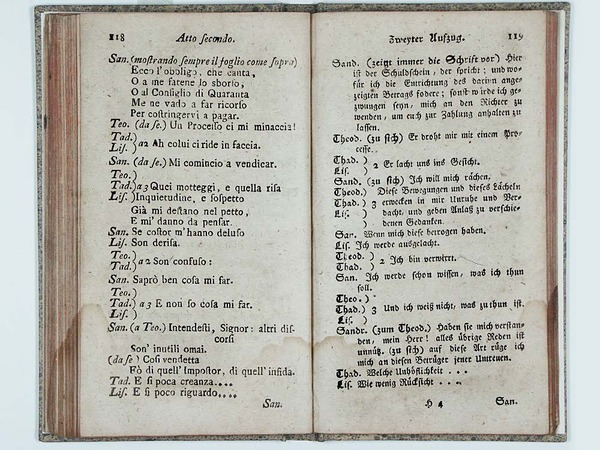 118 Atto ſecondo.
San. (moſtrando ſempre il foglio come ſopra)
Ecco l'obbligo, che canta,
O a me farene lo sborſo,
O al Conſiglio di Quaranta
Me ne vado a far ricorſo
Per coſtringervi a pagar.
Teo. (da ſe.) Un Proceſſo ei mi minaccia!
Tad.)
Liſ. ) a 2 Ah colui ci ride in faccia.
San. (da ſe.) Mi comincio a vendicar.
Teo.)
Tad.) a 3 Quei motteggi, e quella riſa
Liſ. ) Inquietudine, e ſoſpetto
Già mi deſtano nel petto,
E mi danno da penſar.
San. Se coſtor m'hanno deluſo
Liſ. Son deriſa.
Teo.)
Tad.) a 2 Son confuſo:
San. Saprò ben coſa mi far.
Teo.)
Tad.) a 3 E non ſo coſa mi far.
Liſ. )
San. (a Teo.) Intendeſti, Signor: altri diſ-
corſi
Son' inutili omai.
(da ſe) Coſì vendetta
Fò di quell' Impoſtor, di quell' infida.
Tad. E ſi poca creanza....
Liſ. E ſi poco riguardo....
San.
Zweyter Aufzug. 119
Sand. (zeigt immer die Schrift vor) Hier
iſt der Schuldſchein, der ſpricht; und wo-
für ich die Entrichtung des darinn ange-
zeigten Betrags fodere; ſonſt würde ich ge-
zwungen ſeyn, mich an den Richter zu
wenden, um euch zur Zahlung anhalten zu
laſſen.
Theod. (zu ſich) Er droht mir mit einem Pro-
ceſſe.
Thad. )
Liſ. ) 2 Er lacht uns ins Geſicht.
Sand. (zu ſich) Ich will mich rächen.
Theod.) Dieſe Bewegungen und dieſes Lächeln
Thad. ) 3 erwecken in mir Unruhe und Ver-
Liſ. ) dacht, und geben Anlaß zu verſchie-
) denen Gedanken.
San. Wenn mich dieſe betrogen haben.
Liſ. Ich werde ausgelacht.
Theod. )
Thad. ) 2 Ich bin verwirrt.
San. Ich werde ſchon wiſſen, was ich thun
ſoll.
Theo. )
Thad. ) 3 Und ich weiß nicht, was zu thun iſt.
Liſ. )
Sandr. (zum Theod.) Haben ſie mich verſtan-
den, mein Herr! alles übrige Reden iſt
unnütz. (zu ſich) auf dieſe Art räche ich
mich an dieſen Betrüger jener Untreuen.
Thad. Welche Unhöflichkeit ...
Liſ. Wie wenig Rückſicht ....
H 4 San.